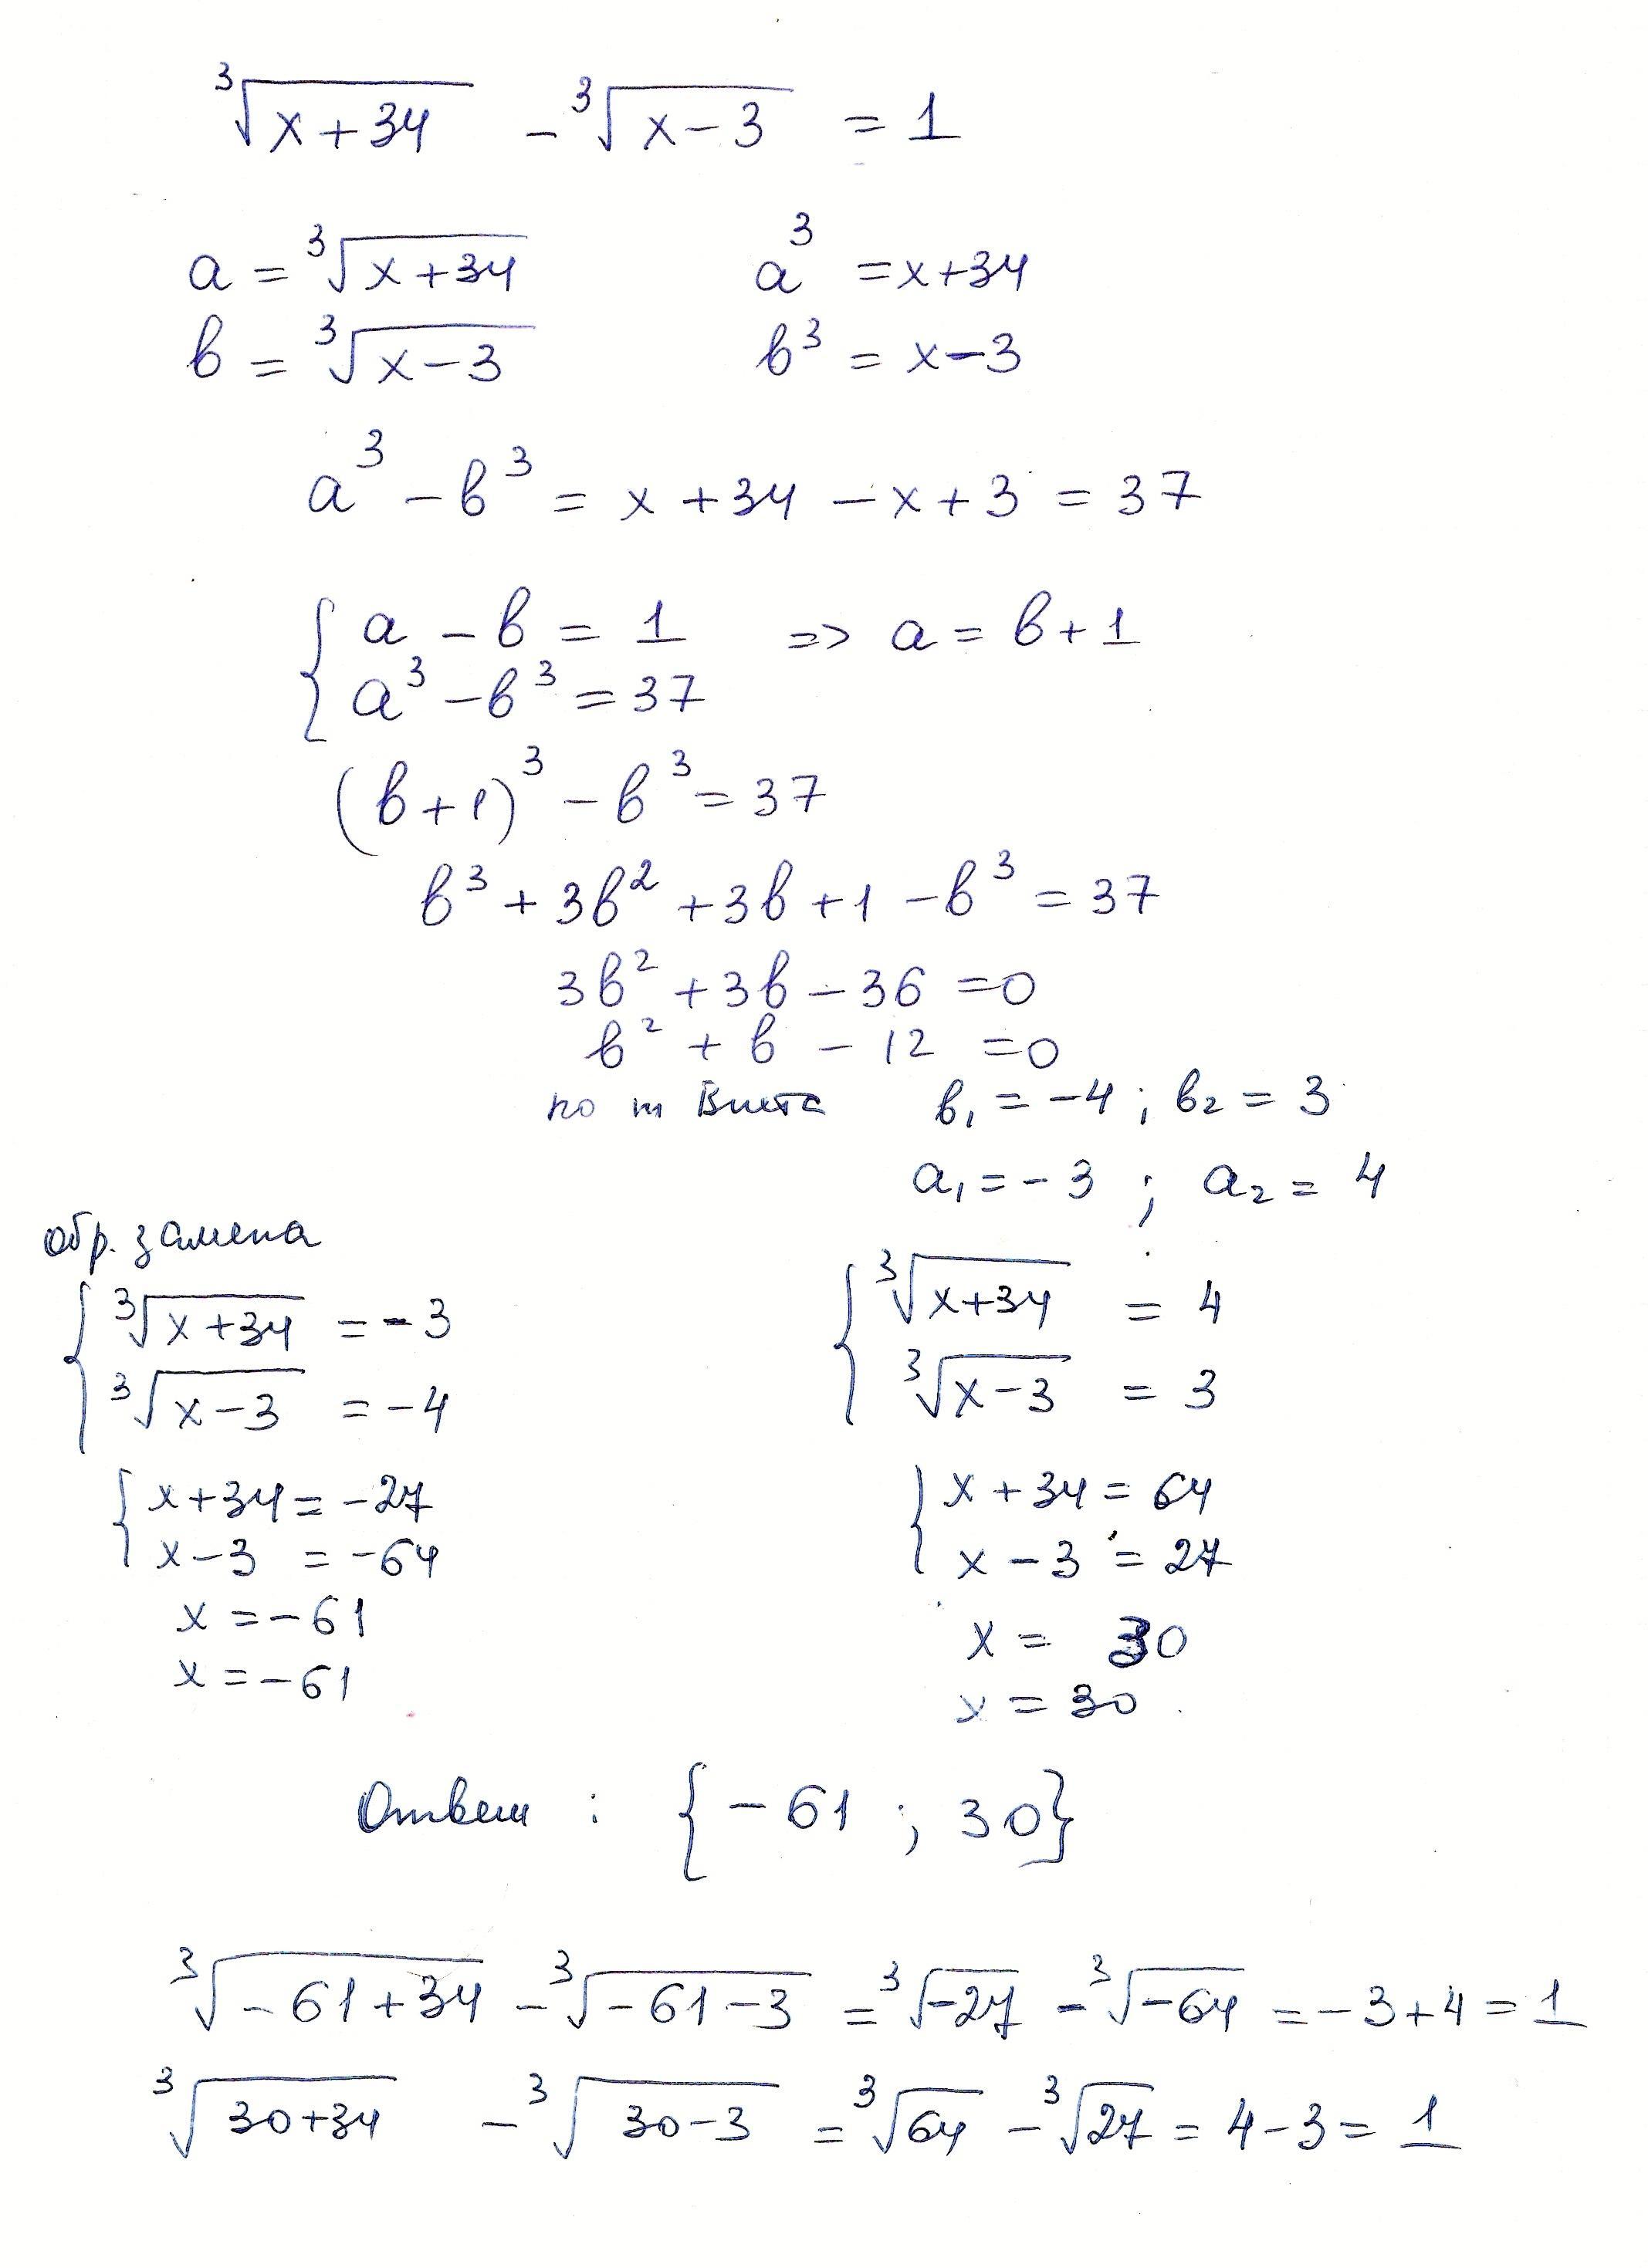 ∛(x+34) - ∛(x-3) = 1
a = ∛(x+34)    a³ = x+34
b = ∛(x-3)    b³ = x-3
a³ - b³ = x+34 - x+3 = 37
{ a - b = 1 => a = b+1
a³ - b³ = 37
(b+1)³ - b³ = 37
b³ + 3b² + 3b + 1 - b³ = 37
3b² + 3b - 36 = 0
b² + b - 12 = 0
по т Виета b₁ = -4 ; b₂ = 3
a₁ = -3 ; a₂ = 4
обр. замена
{ ∛(x+34) = -3
∛(x-3) = -4
{ x+34 = -27
x-3 = -64
x = -61
x = -61
{ ∛(x+34) = 4
∛(x-3) = 3
{ x+34 = 64
x-3 = 27
x = 30
x = 30
Ответ : {-61 ; 30}
∛(-61+34) - ∛(-61-3) = ∛(-27) - ∛(-64) = -3+4 = 1
∛(30+34) - ∛(30-3) = ∛64 - ∛27 = 4-3 = 1